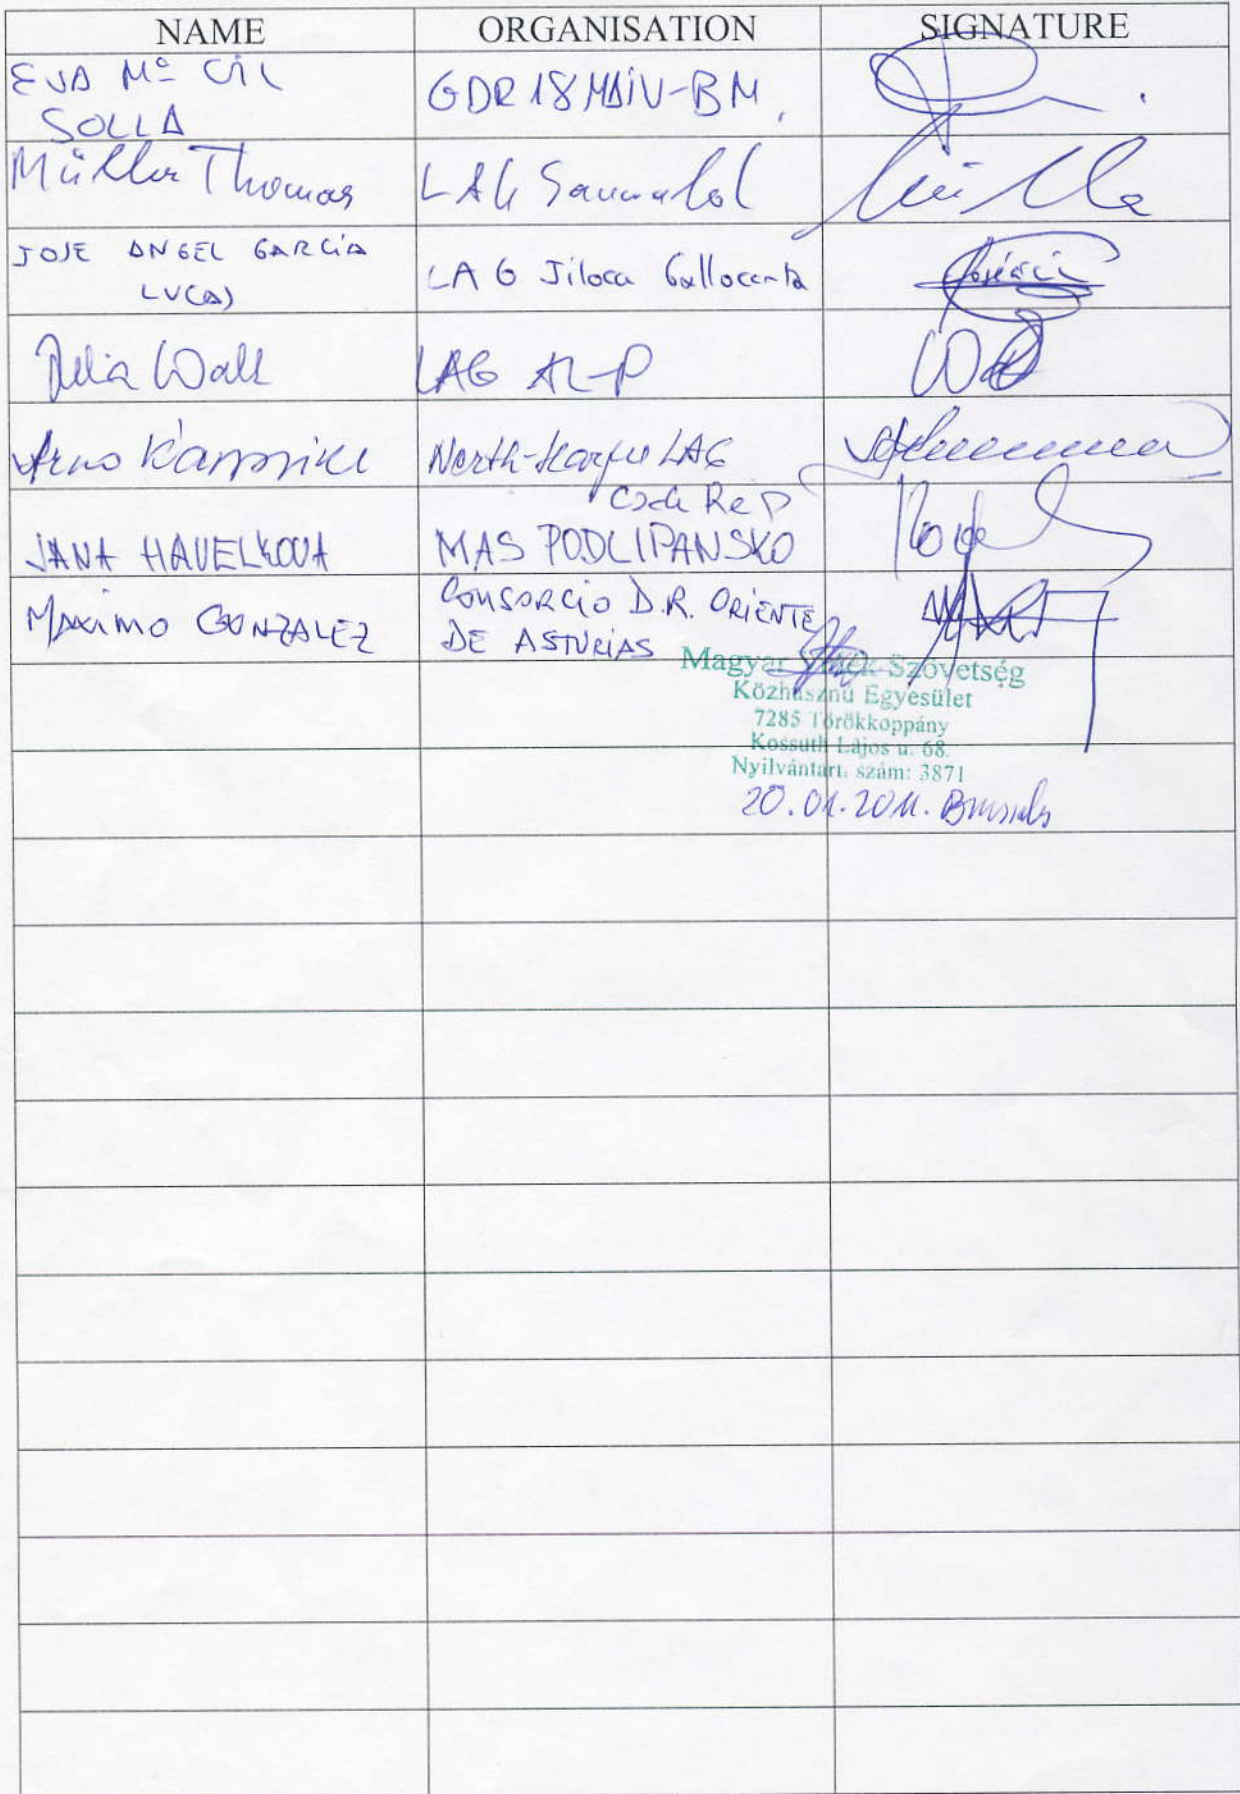 NAME ORGANISATION SIGNATURE
EVA Mª CIL GDR 18 MAIV-BM.
SOLLA
Müller Thomas LAG
JOSE ANGEL GARCÍA LAG Jiloca Gallocanta
LUCAS
Julia Wall LAG AL-P
Arno North-Harju LAG
Czech Rep
JANA HAVELKOVA MAS PODLIPANSKO
MAXIMO GONZALEZ CONSORCIO D.R. ORIENTE
DE ASTURIAS
Magyar Szövetség
Közhasznú Egyesület
7285 Törökkoppány
Kossuth Lajos u. 68.
Nyilvántart. szám: 3871
20.01.2011. Brussels